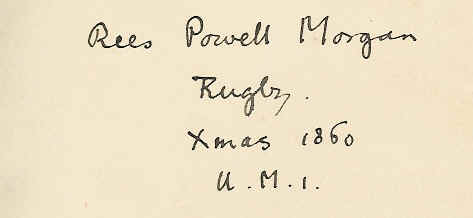 Rees Powell Morgan
Rugby.
Xmas 1860
U.M.1.